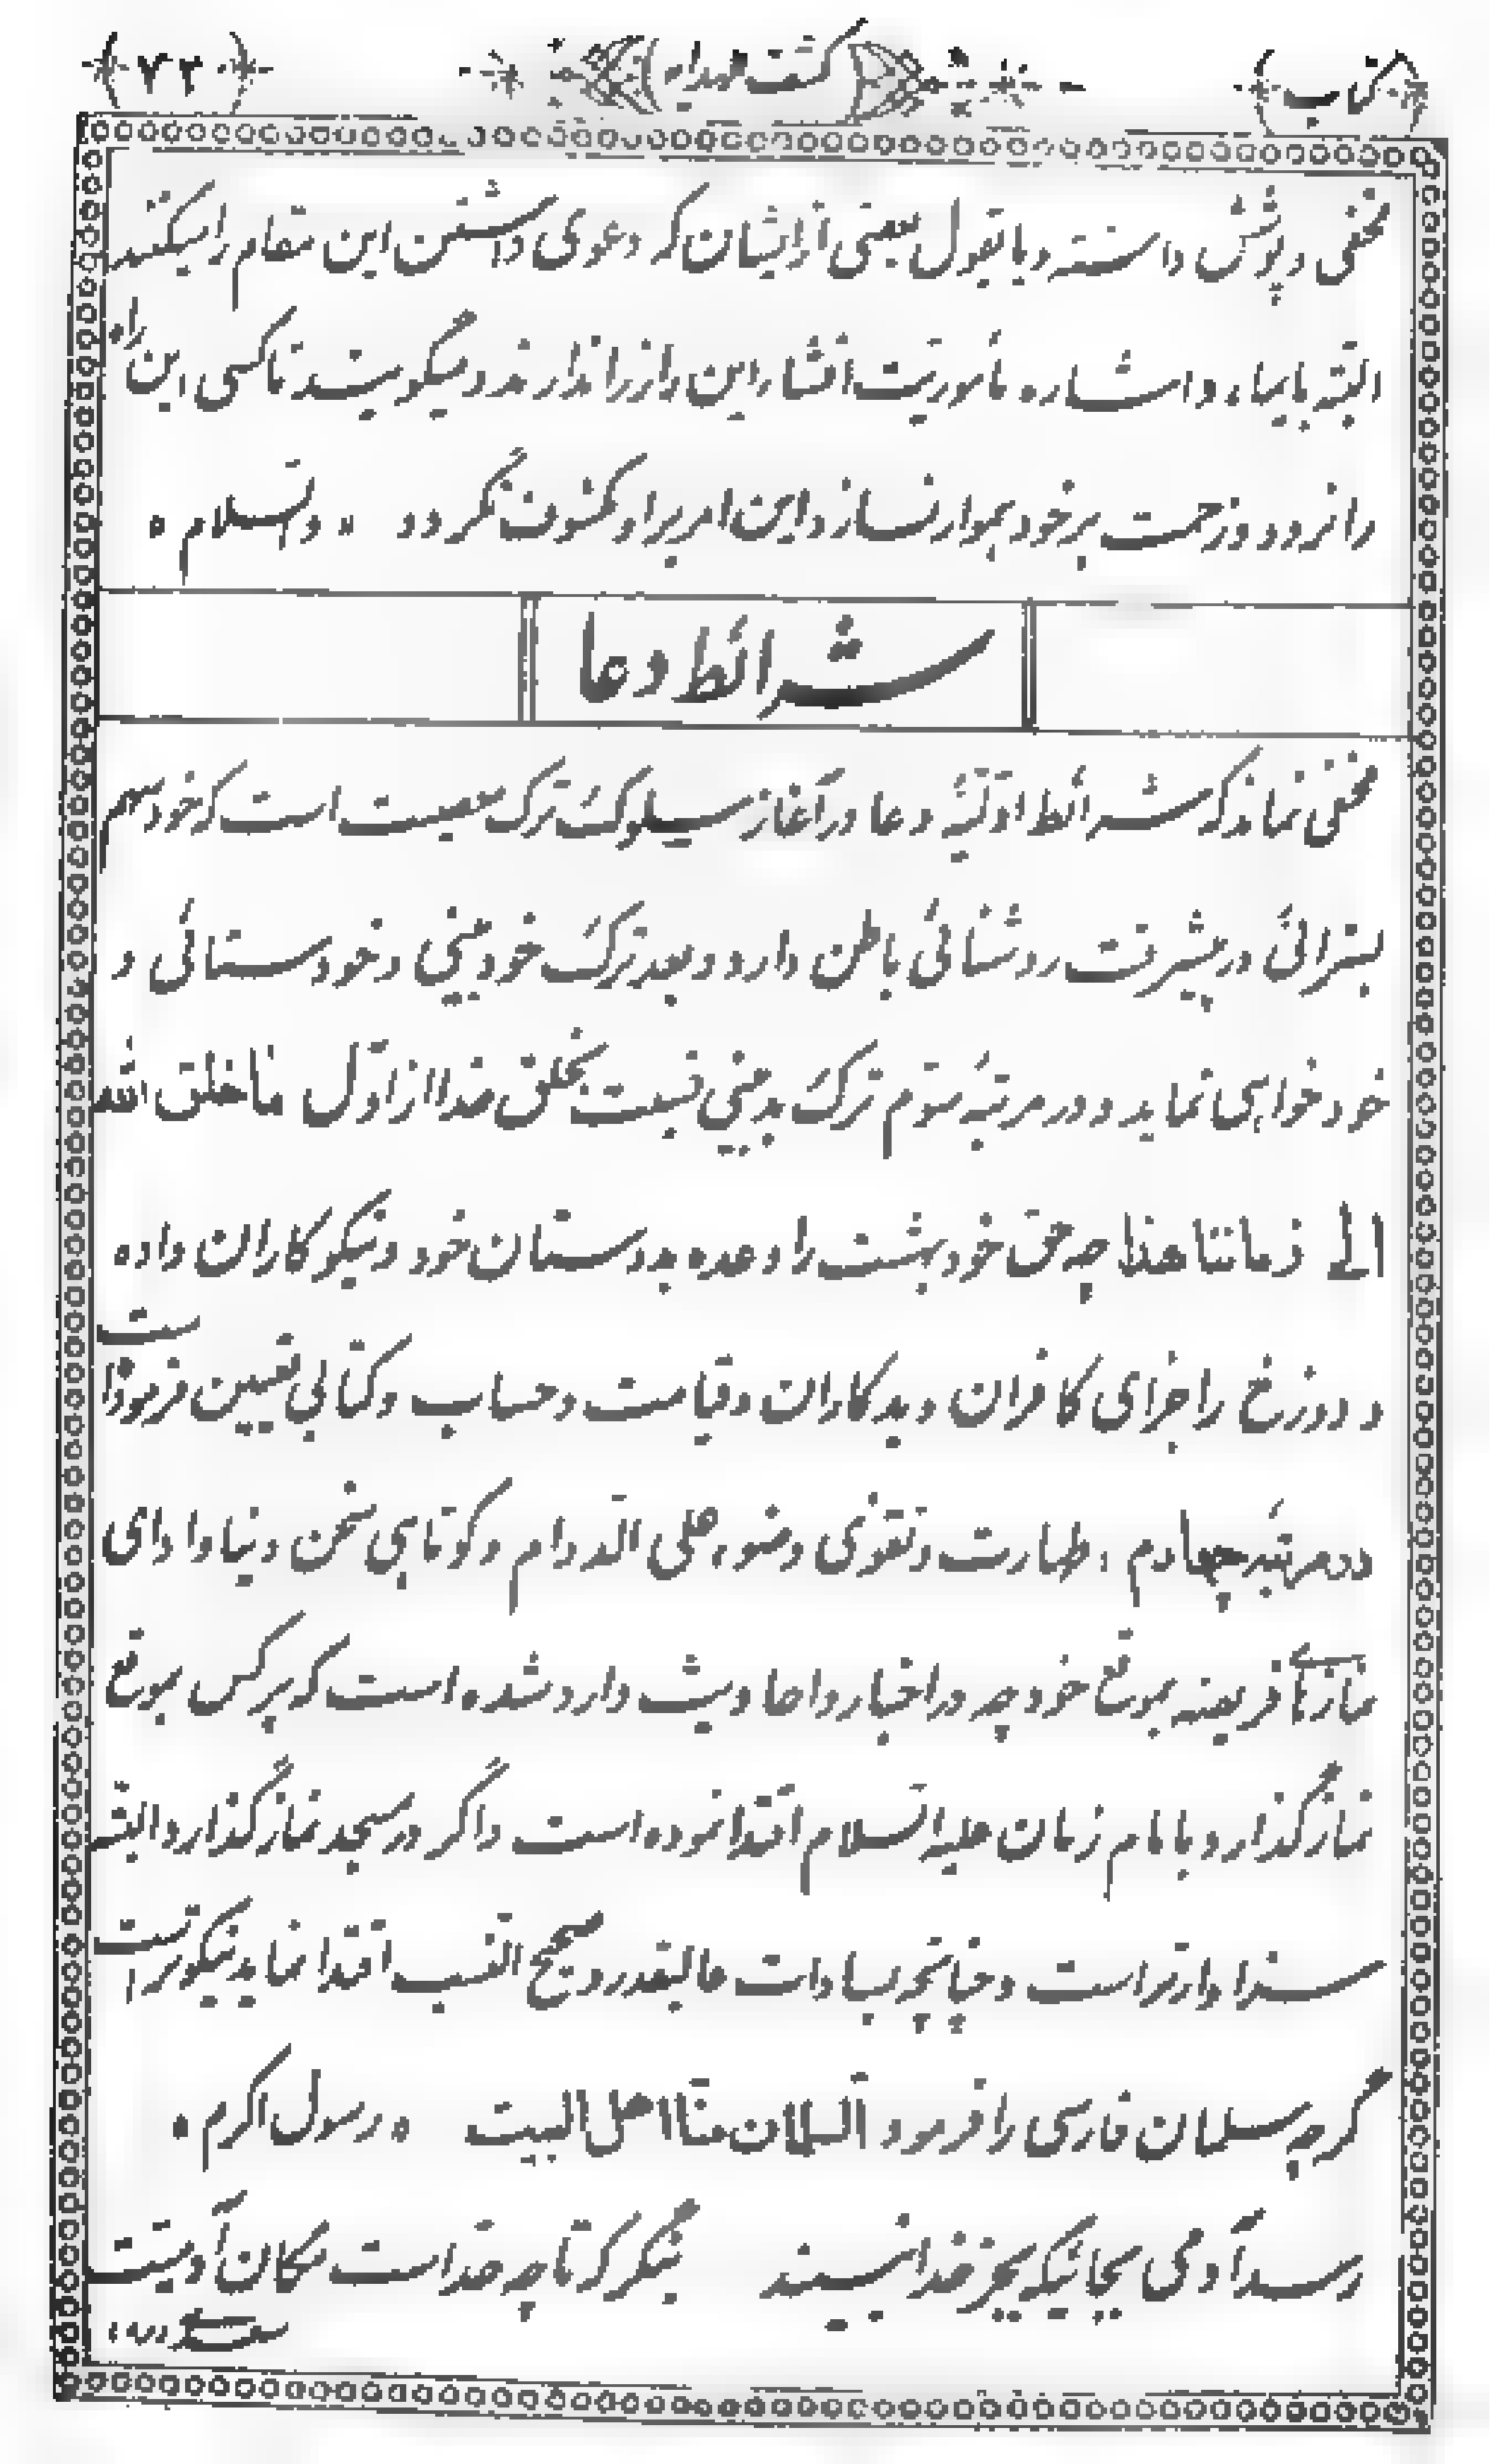 کتاب ﴿ کشف الهدایه ﴾ ﴿۷۳﴾
مخفی و پوش داشته و یا بقول بعضی از ایشان که دعوی داشتن این مقام را میکنند
البته بایماء و اشاره مأموریت افشاء این راز را ندارند و میگویند تا کسی این راه
را نرود و زحمت بر خود هموار نسازد این امر بر او کشوف نگردد ٭ والسلام ٭
شرائط دعا
مخفی نماند که شرائط اولیهٔ دعا در آغاز سیلوک ترک معصیت است که خود سهم
بسزائی در پیشرفت روشنائی باطن دارد و بعد ترک خودبینی و خودستائی و
خودخواهی نماید و در مرتبهٔ سوّم ترک بدبینی نسبت بخلق خدا از اوّل ما خلق الله
الی زماننا هذا چه حق خود بهشت را وعده بدوستان خود و نیکوکاران داده
و دوزخ را جزای کافران و بدکاران و قیامت و حساب و کتابی تعیین فرموده است
در مرتبهٔ چهارم ، طهارت و تقوی وضوء علی الدوام و کوتاهی سخن دنیا و ادای
نمازهای فریضه بموقع خود چه در اخبار و احادیث وارد شده است که هر کس بموقع
نماز گذارد با امام زمان علیه السلام اقتدا نموده است و اگر در مسجد نماز گذارد البته
سزاوارتر است و چنانچه بسادات عالیقدر و صحیح النسب اقتدا نماید نیکوتر است
گرچه سلمان فارسی را فرمود السلمان منا اهل البیت ٭ رسول اکرم ٭
رسد آدمی بجائیکه بجز خدا نبیند بنگر که تا چه حد است مکان آدمیت